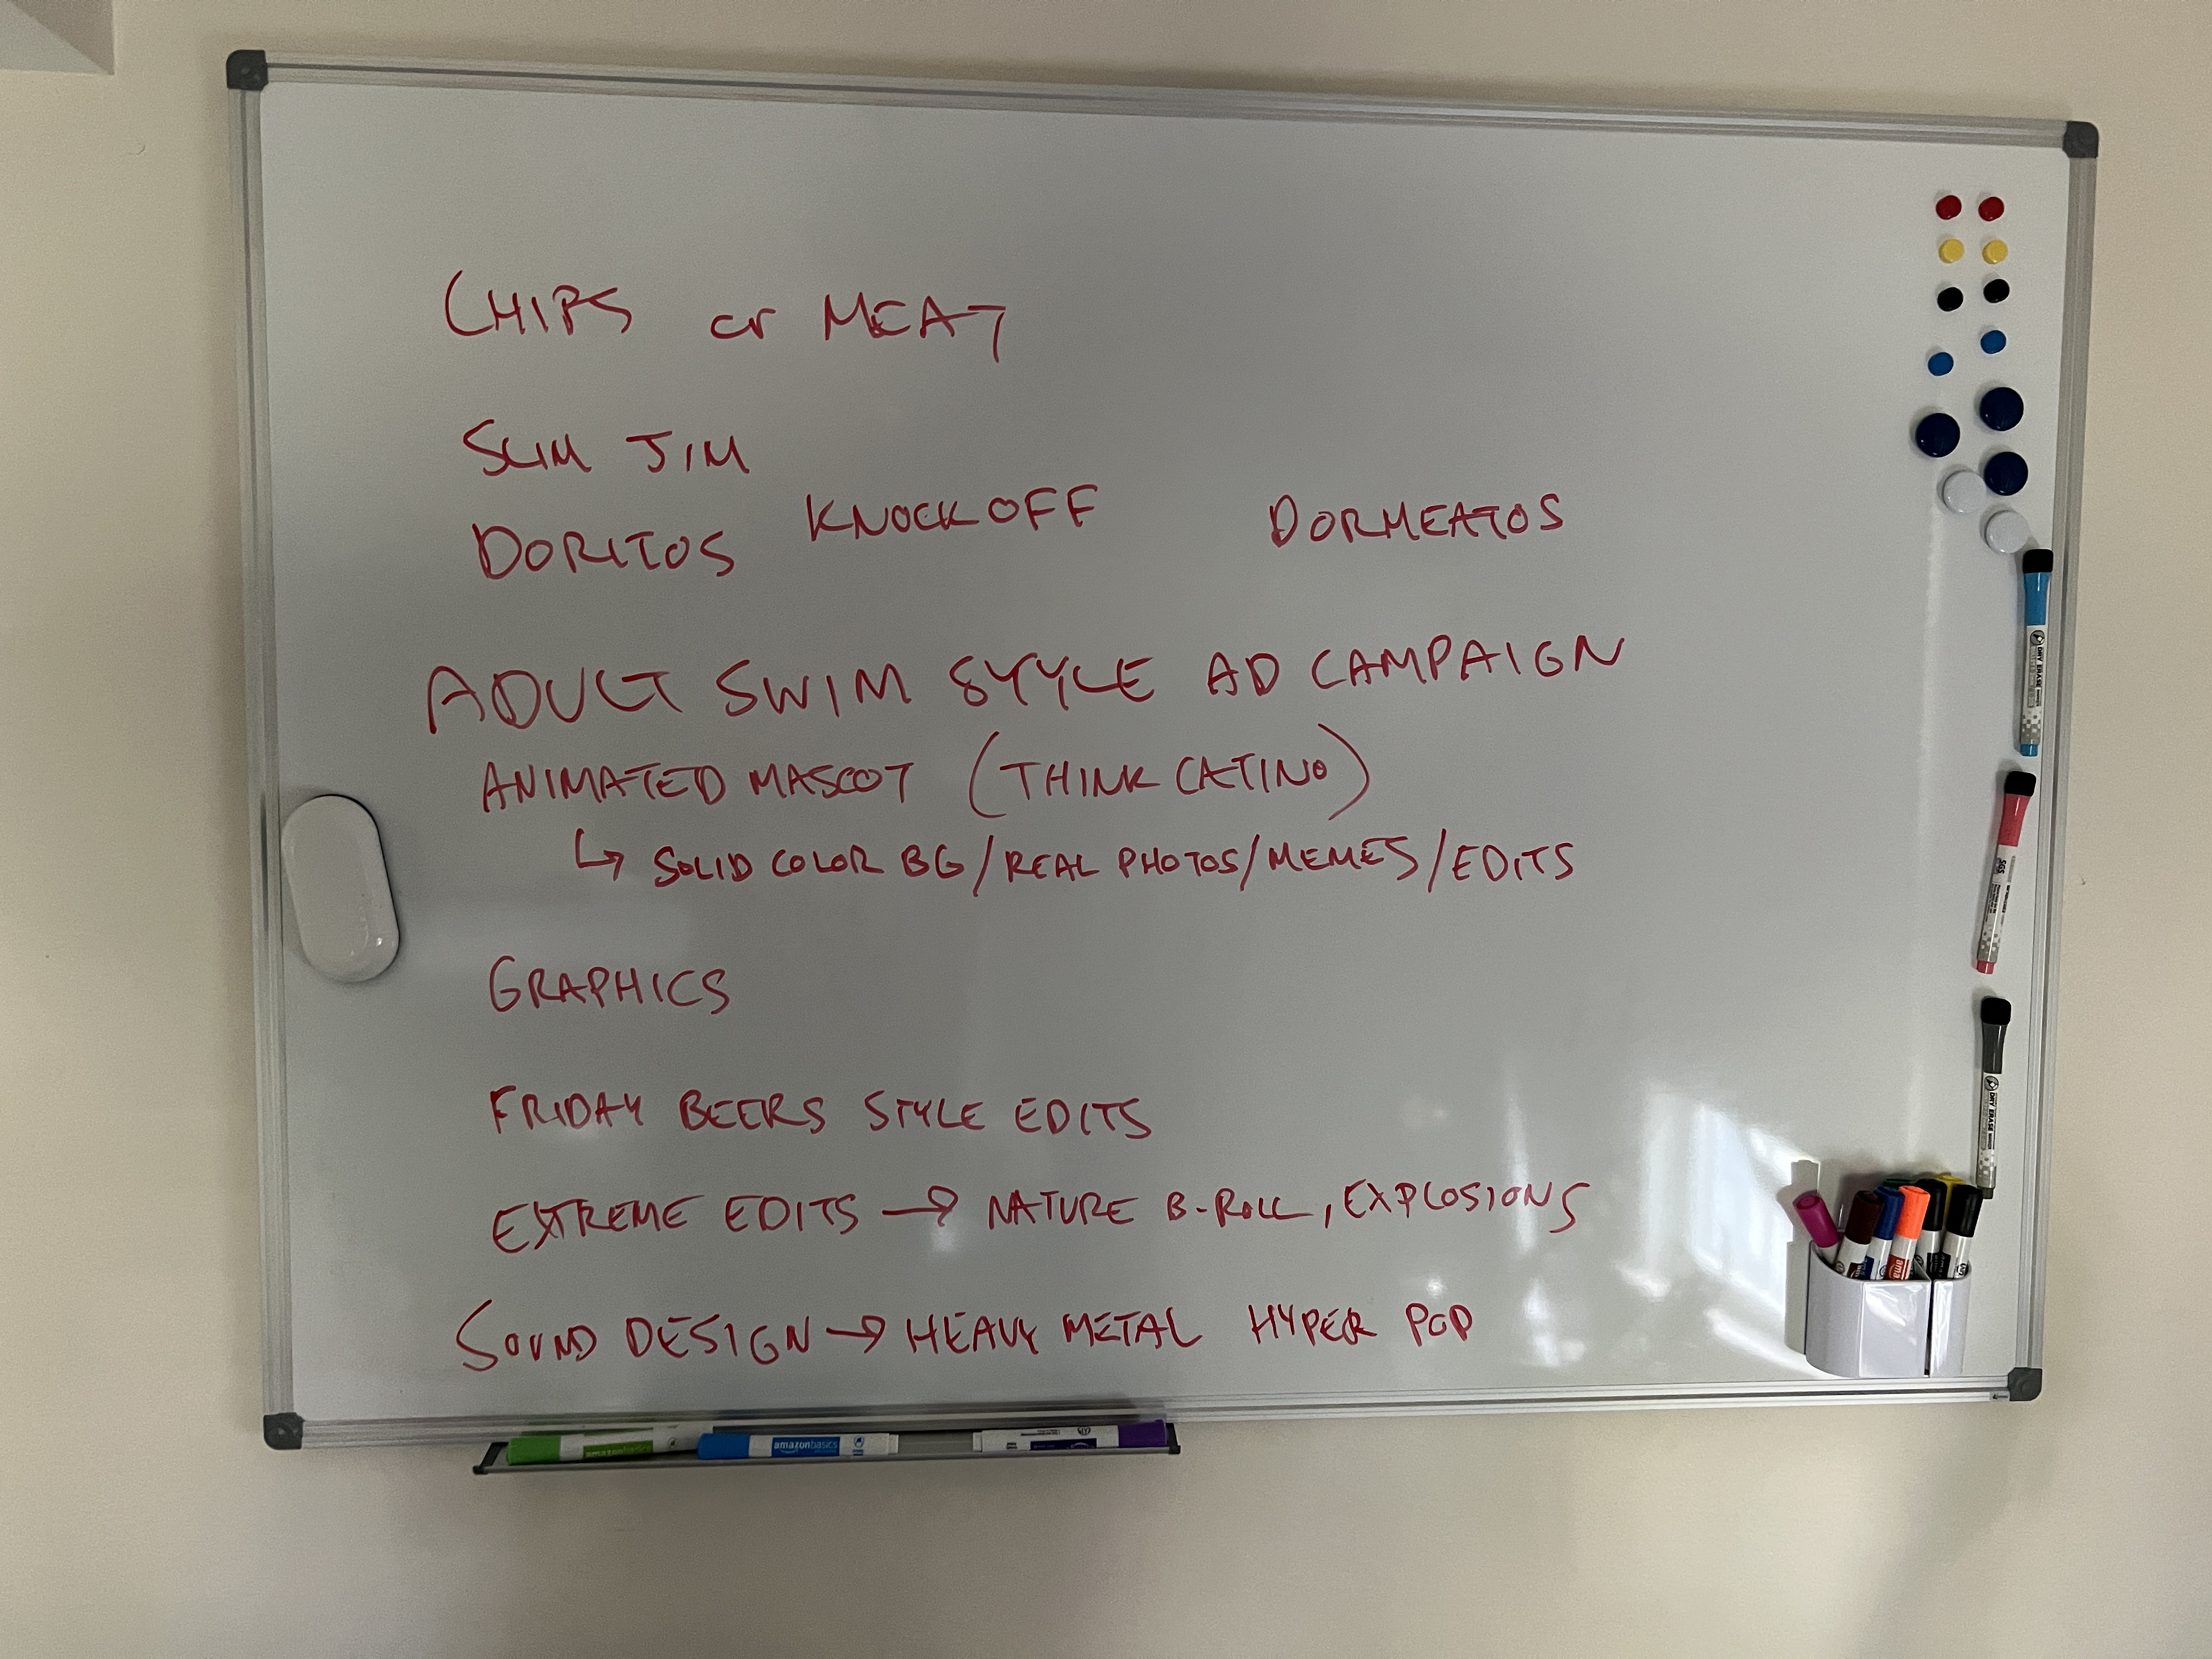 CHIPS or MEAT
SLIM JIM
DORITOS KNOCKOFF DORMEATOS
ADULT SWIM STYYLE AD CAMPAIGN
ANIMATED MASCOT (THINK CATINO)
↳ SOLID COLOR BG/REAL PHOTOS/MEMES/EDITS
GRAPHICS
FRIDAY BEERS STYLE EDITS
EXTREME EDITS → NATURE B-ROLL, EXPLOSIONS
SOUND DESIGN → HEAVY METAL HYPER POP
DRY ERASE
DRY ERASE
amazonbasics
amazonbasics